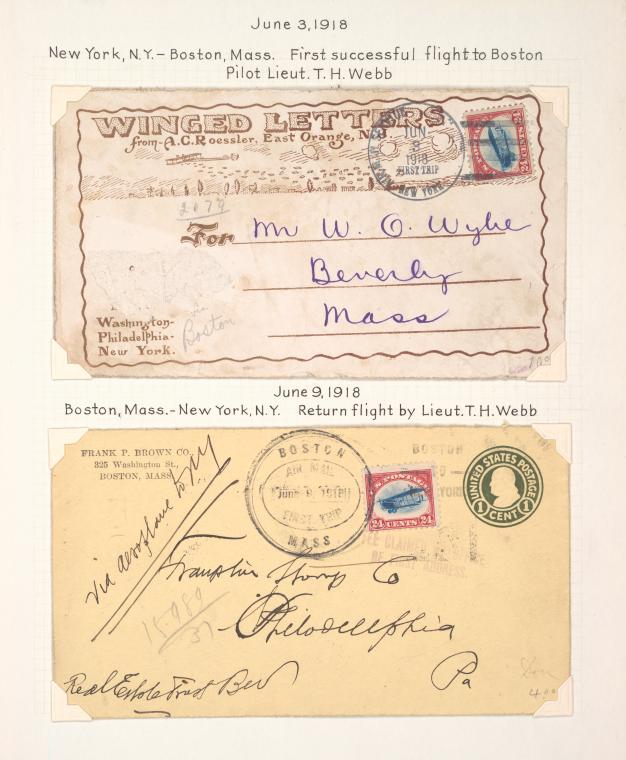 June 3, 1918
New York, N.Y. – Boston, Mass. First successful flight to Boston
Pilot Lieut. T. H. Webb
WINGED LETTERS
from - A.C. Roessler, East Orange, N.J.
JUN
3
1918
FIRST TRIP
NEW YORK
24 CENTS 24
2079
For Mr W. O. Wylie
Beverly
Mass
Washington-
Philadelphia-
New York.
via
Boston
June 9, 1918
Boston, Mass. - New York, N.Y. Return flight by Lieut. T. H. Webb
FRANK P. BROWN CO.
325 Washington St.,
BOSTON, MASS.
via aeroplane to NY
BOSTON
AIR MAIL
June 9, 1918
FIRST TRIP
MASS
BOSTON
YORK
U.S. POSTAGE
24 CENTS 24
UNITED STATES POSTAGE
1 CENT 1
FIRST ADDRESS.
Stamp Co
Philadelphia
Pa
Real Estate Trust
4.00